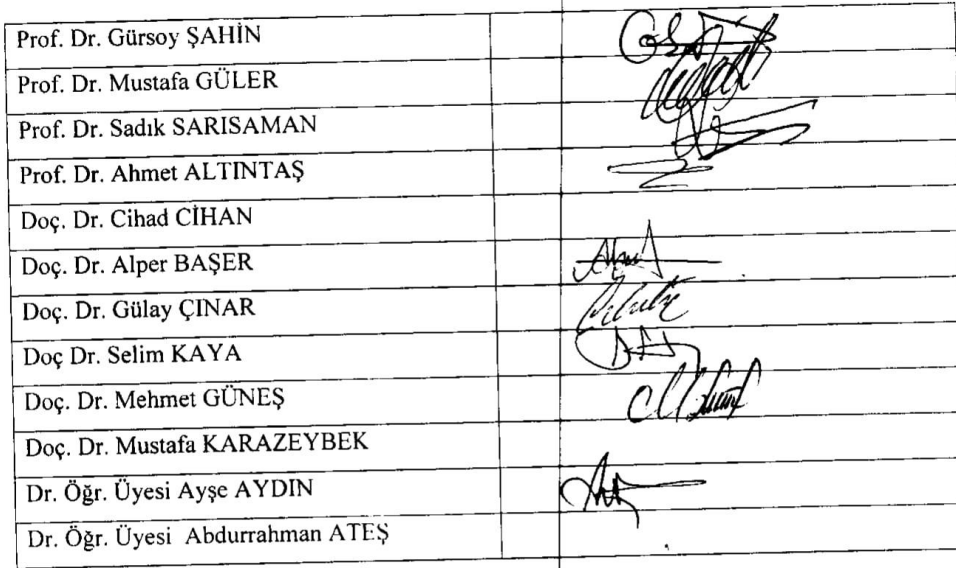 Prof. Dr. Gürsoy ŞAHİN
Prof. Dr. Mustafa GÜLER
Prof. Dr. Sadık SARISAMAN
Prof. Dr. Ahmet ALTINTAŞ
Doç. Dr. Cihad CİHAN
Doç. Dr. Alper BAŞER
Doç. Dr. Gülay ÇINAR
Doç Dr. Selim KAYA
Doç. Dr. Mehmet GÜNEŞ
Doç. Dr. Mustafa KARAZEYBEK
Dr. Öğr. Üyesi Ayşe AYDIN
Dr. Öğr. Üyesi Abdurrahman ATEŞ